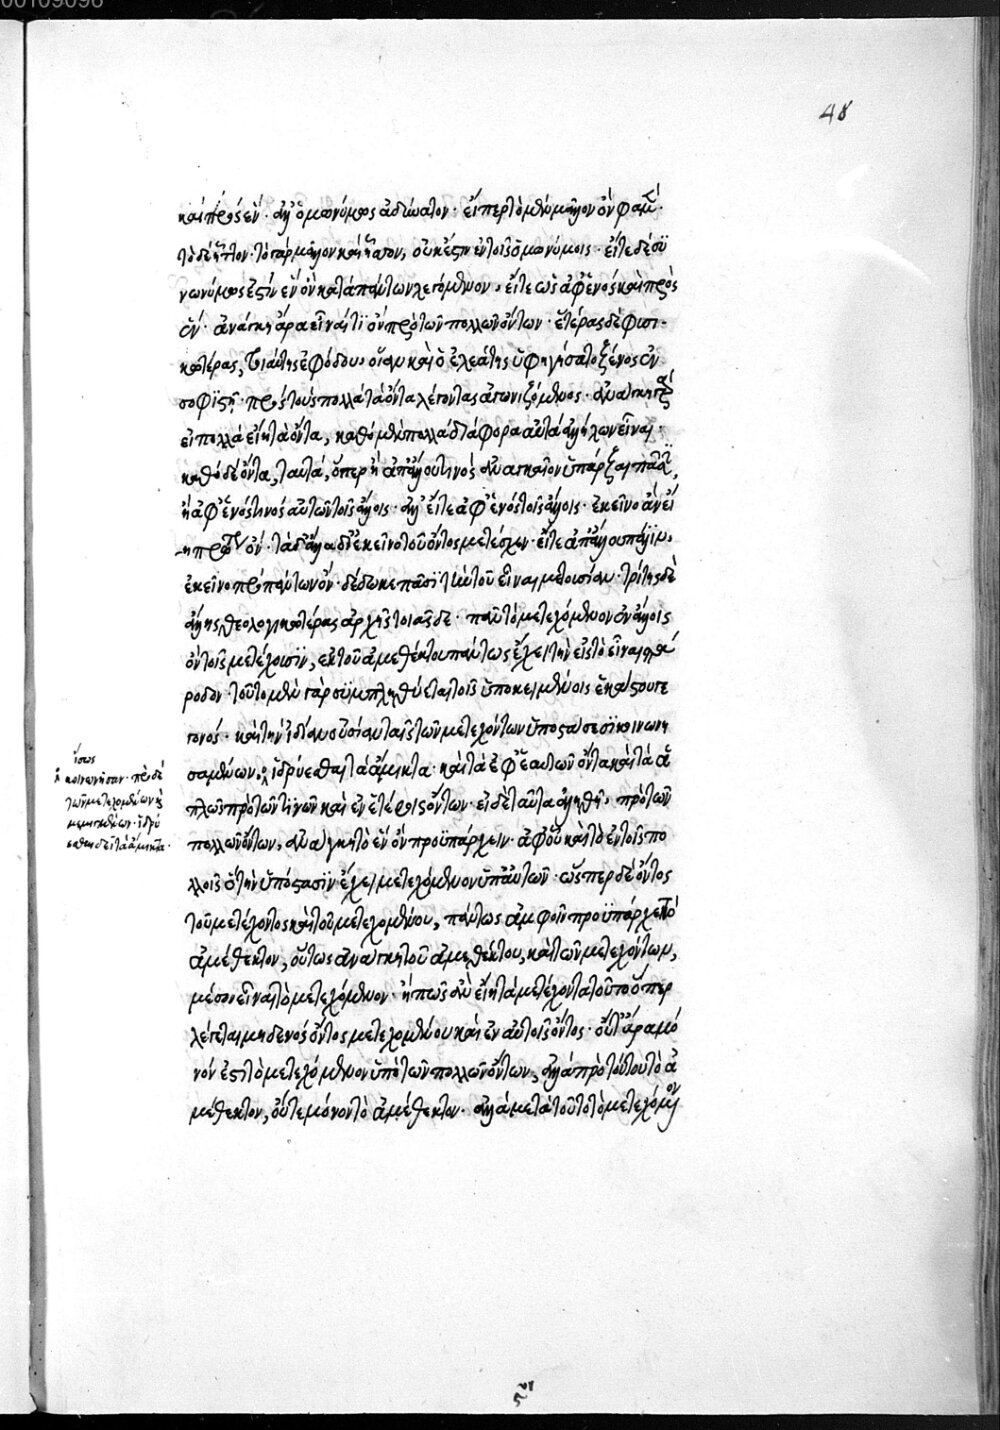 00109098
48
καὶ πρὸς ἕν· ἀλλ' ὁμωνύμως ἀδύνατον· εἴπερ τὸ μὲν μᾶλλον ὂν φαμὲν·
τὸ δὲ ἧττον· τὸ γὰρ μᾶλλον καὶ ἧττον, οὐκ ἔστιν ἐν τοῖς ὁμωνύμοις· εἴτε δὲ συ
νωνύμως ἐστὶν ἓν ὂν κατὰ πάντων λεγόμενον, εἴτε ὡς ἀφ' ἑνὸς καὶ πρὸς
ἕν· ἀνάγκη ἄρα εἶναί τι ὂν πρὸ τῶν πολλῶν ὄντων· ἑτέρας δὲ φυσι-
κωτέρας, τοιαύτης ἐφόδου, οἵαν καὶ ὁ ἐλεάτης ὑφηγήσατο ξένος ἐν
σοφιστῇ· πρὸς τοὺς πολλὰ τὰ ὄντα λέγοντας ἀγωνιζόμενος· ἀνάγκη γὰρ
εἰ πολλὰ εἴη τὰ ὄντα, καθὸ μὲν πολλὰ διάφορα αὐτὰ ἀλλήλων εἶναι·
καθὸ δὲ ὄντα, ταυτά, ὅπερ ἢ ἀπ' ἄλλου τινὸς ἀναγκαῖον ὑπάρξαι πᾶσι,
ἢ ἀφ' ἑνός τινος αὐτῶν τοῖς ἄλλοις· ἀλλ' εἴτε ἀφ' ἑνὸς τοῖς ἄλλοις· ἐκεῖνο ἂν εἴ
η πρώτως ὄν· τὰ δ' ἄλλα δι' ἐκεῖνο τοῦ ὄντος μετέσχεν· εἴτε ἀπ' ἄλλου πᾶσιν,
ἐκεῖνο πρὸ πάντων ὂν· δέδωκε πᾶσι τὴν τοῦ εἶναι μετουσίαν· τρίτης δὲ
ἄλλης θεολογικωτέρας ἀρχῆς τοιᾶσδε· πᾶν τὸ μετεχόμενον ἐν ἄλλοις
ὂν τοῖς μετέχουσιν, ἐκ τοῦ ἀμεθέκτου πάντως ἔχει τὴν εἰς τὸ εἶναι πά
ροδον· τοῦτο μὲν γὰρ συμπληθύεται τοῖς ὑποκειμένοις ἑκάστου γε
γονός· καὶ τὴν ἰδίαν οὐσίαν ταῖς τῶν μετεχόντων ὑποστάσεσι κοινωνη
σαμένων· ἱδρύεσθαι τὰ ἄμικτα· καὶ τὰ ἐφ' ἑαυτῶν ὄντα καὶ τὰ ἁ
πλῶς πρὸ τῶν τινῶν καὶ ἐν ἑτέροις ὄντων· εἰ δὲ ταῦτα ἀληθῆ, πρὸ τῶν
πολλῶν ὄντων, ἀνάγκη τὸ ἓν ὂν προϋπάρχειν· ἀφ' οὗ καὶ τὸ ἐν τοῖς πο
λλοῖς ὂν τὴν ὑπόστασιν ἔχει μετεχόμενον ὑπ' αὐτῶν· ὥσπερ δὲ ὄντος
τοῦ μετέχοντος καὶ τοῦ μετεχομένου, πάντως ἀμφοῖν προϋπάρχει τὸ
ἀμέθεκτον, οὕτως ἀνάγκη τοῦ ἀμεθέκτου, καὶ τῶν μετεχόντων,
μέσον εἶναι τὸ μετεχόμενον· ἢ πῶς ἂν εἴη τὰ μετέχοντα τοῦτο ὅπερ
λέγεται μηδενὸς ὄντος μετεχομένου καὶ ἐν αὐτοῖς ὄντος· οὔτ' ἄρα μό
νον ἐστὶ τὸ μετεχόμενον ὑπὸ τῶν πολλῶν ὄντων, ἀλλὰ πρὸ τούτου τὸ ἀ
μέθεκτον, οὔτε μόνον τὸ ἀμέθεκτον· ἀλλὰ μετὰ τοῦτο τὸ μετεχόμενον
ἴσως
κοινωνῆσαν· πρὸ δὲ
τῶν μετεχομένων καὶ
μεμιγμένων· ἱδρύ
εσθαι δεῖ τὰ ἄμικτα·